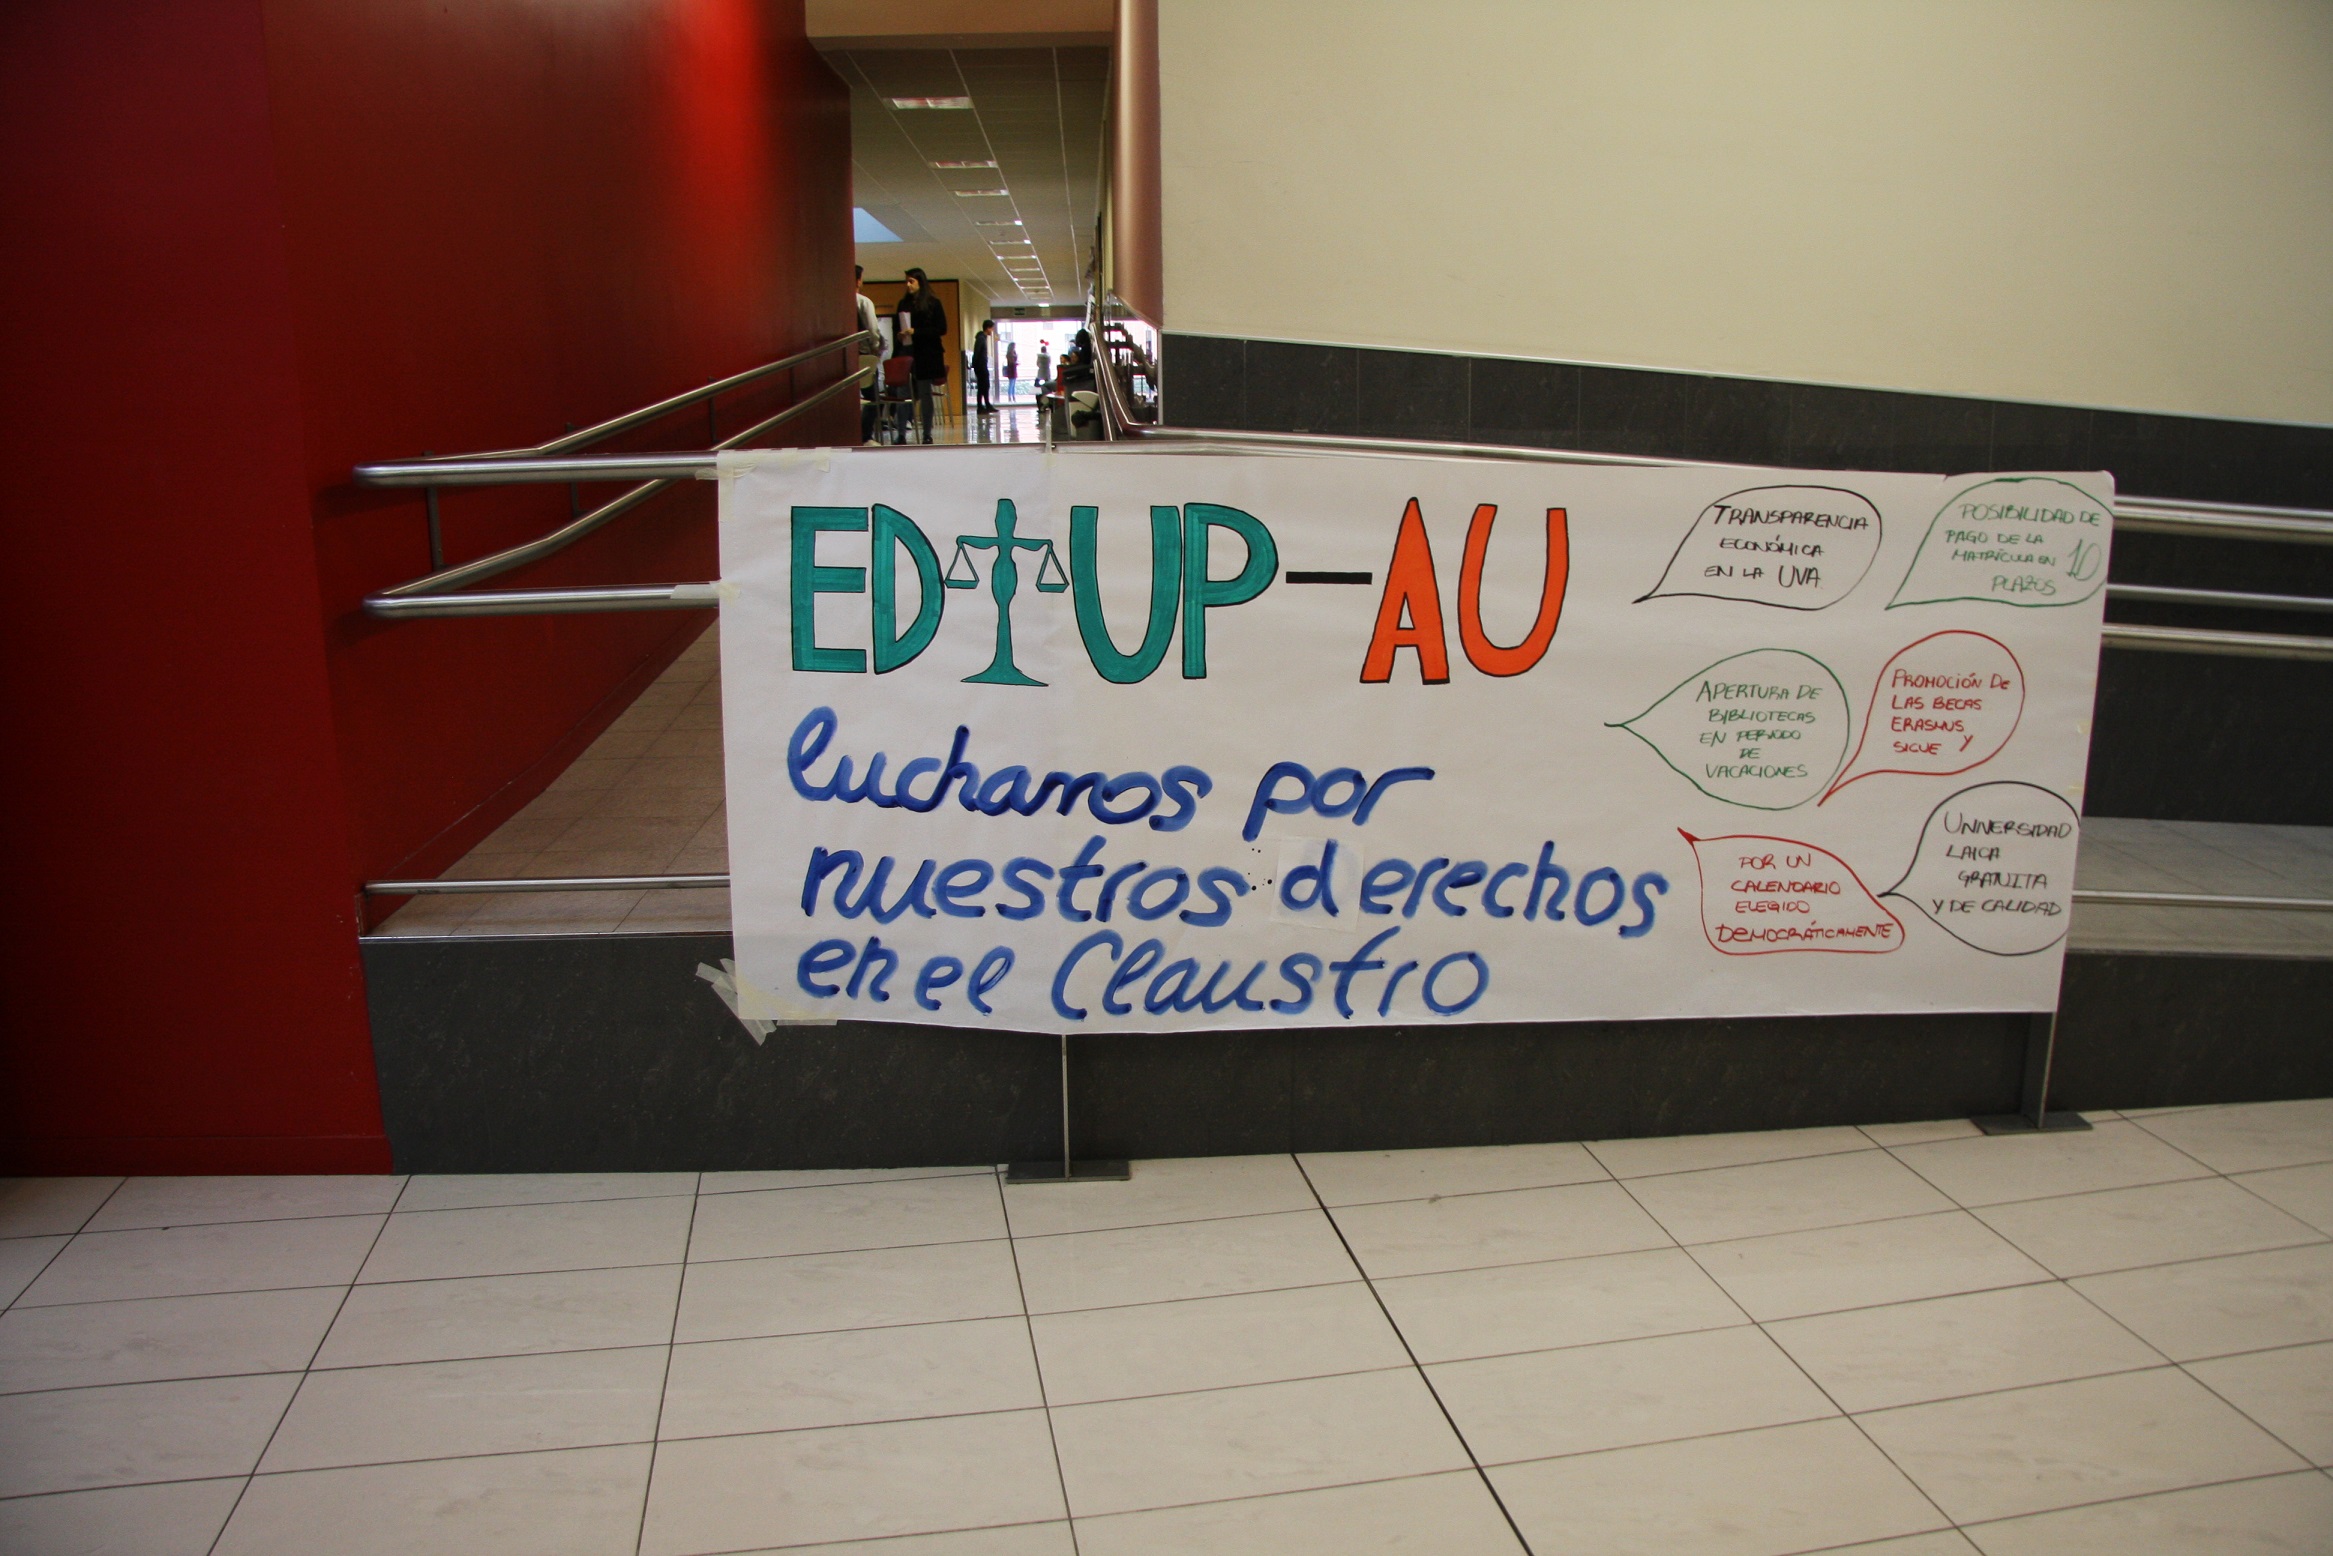 EDIUP-AU
luchamos por
nuestros derechos
en el Claustro
TRANSPARENCIA
ECONÓMICA
EN LA UVA
POSIBILIDAD DE
PAGO DE LA
MATRÍCULA EN 10
PLAZOS
APERTURA DE
BIBLIOTECAS
EN PERIODO
DE
VACACIONES
PROMOCIÓN DE
LAS BECAS
ERASMUS Y
SICUE
POR UN
CALENDARIO
ELEGIDO
DEMOCRÁTICAMENTE
UNIVERSIDAD
LAICA
GRATUITA
Y DE CALIDAD